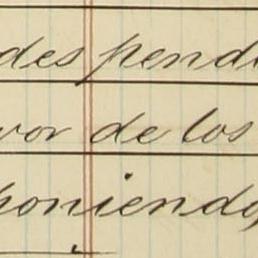 des pend
vor de los
poniendo,